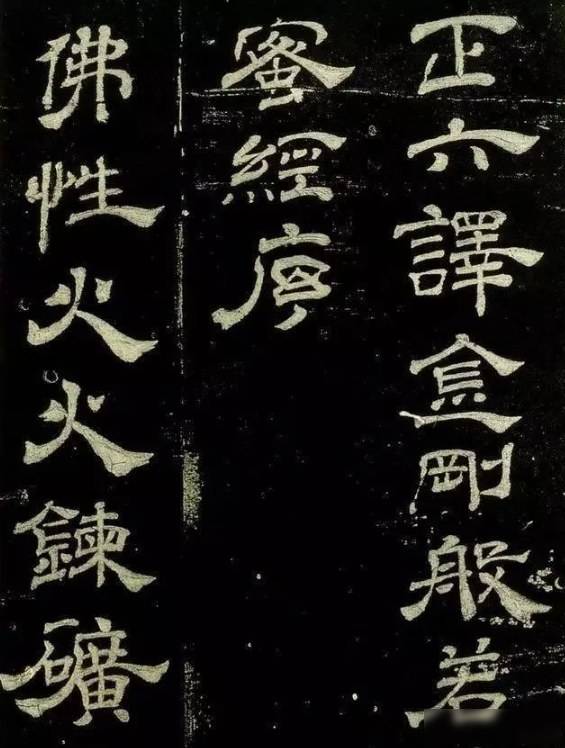 正六譯金剛般若
蜜經序
佛性火火鍊礦